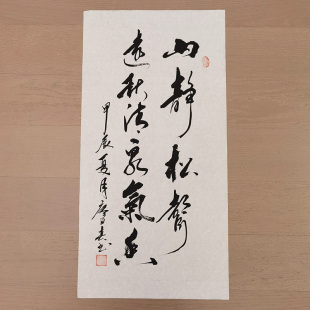 山静松聲
遠秋清泉氣香
甲辰夏月